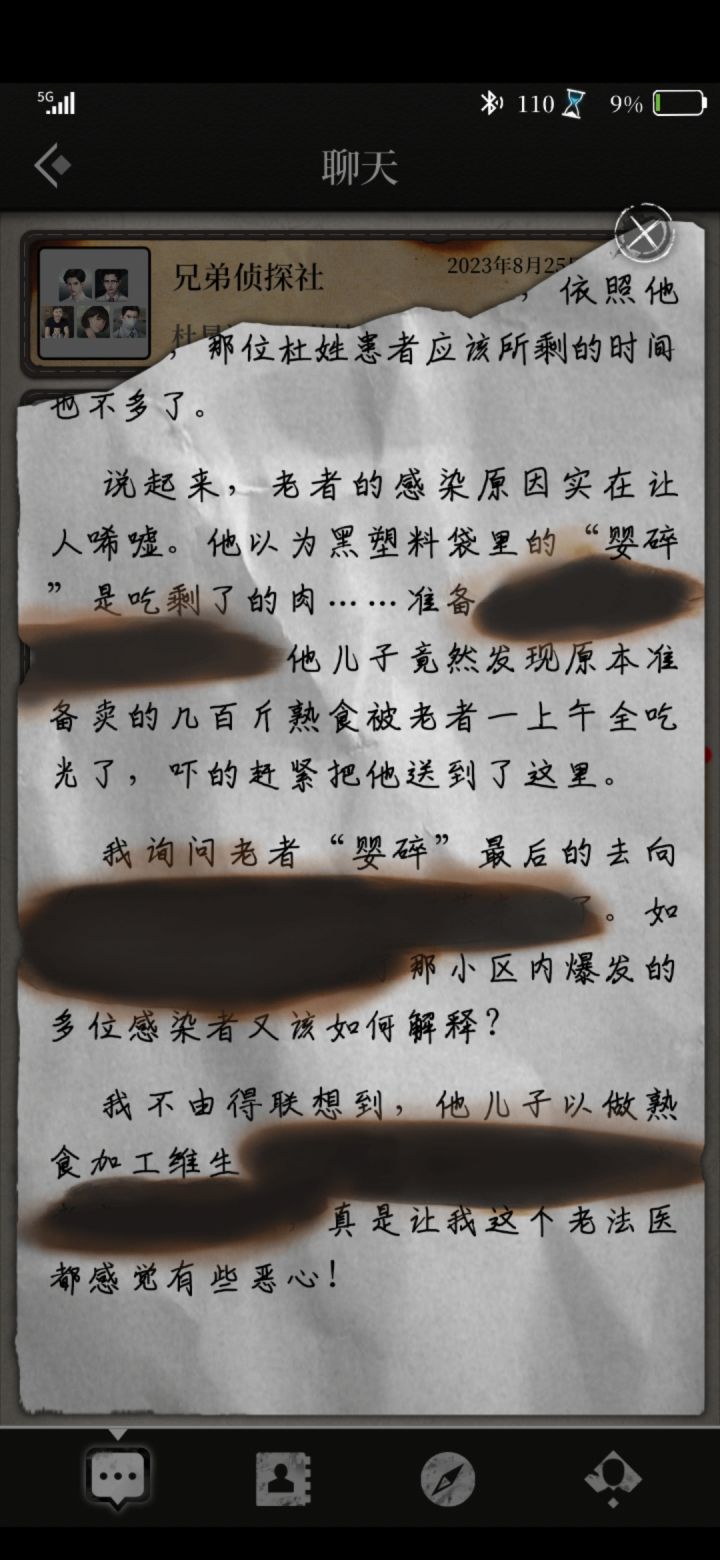 5G
110
9%
聊天
兄弟侦探社
2023年8月25
，依照他
，那位杜姓患者应该所剩的时间
也不多了。
说起来，老者的感染原因实在让
人唏嘘。他以为黑塑料袋里的“婴碎
”是吃剩了的肉……准备
他儿子竟然发现原本准
备卖的几百斤熟食被老者一上午全吃
光了，吓的赶紧把他送到了这里。
我询问老者“婴碎”最后的去向
了。如
那小区内爆发的
多位感染者又该如何解释？
我不由得联想到，他儿子以做熟
食加工维生
，真是让我这个老法医
都感觉有些恶心！